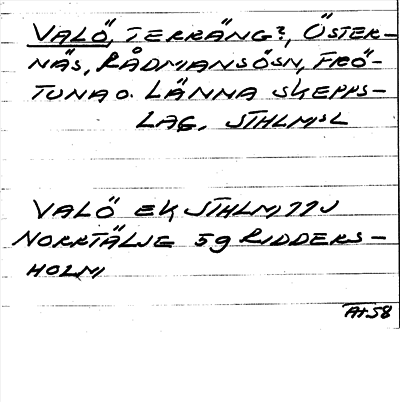 VALÖ, TERRÄNG?, ÖSTER-
NÄS, RÅDMANSÖSN, FRÖ-
TUNA O. LÄNNA SKEPPS-
LAG, STHLMSL
VALÖ EK STHLM 11J
NORRTÄLJE 5g RIDDERS-
HOLM